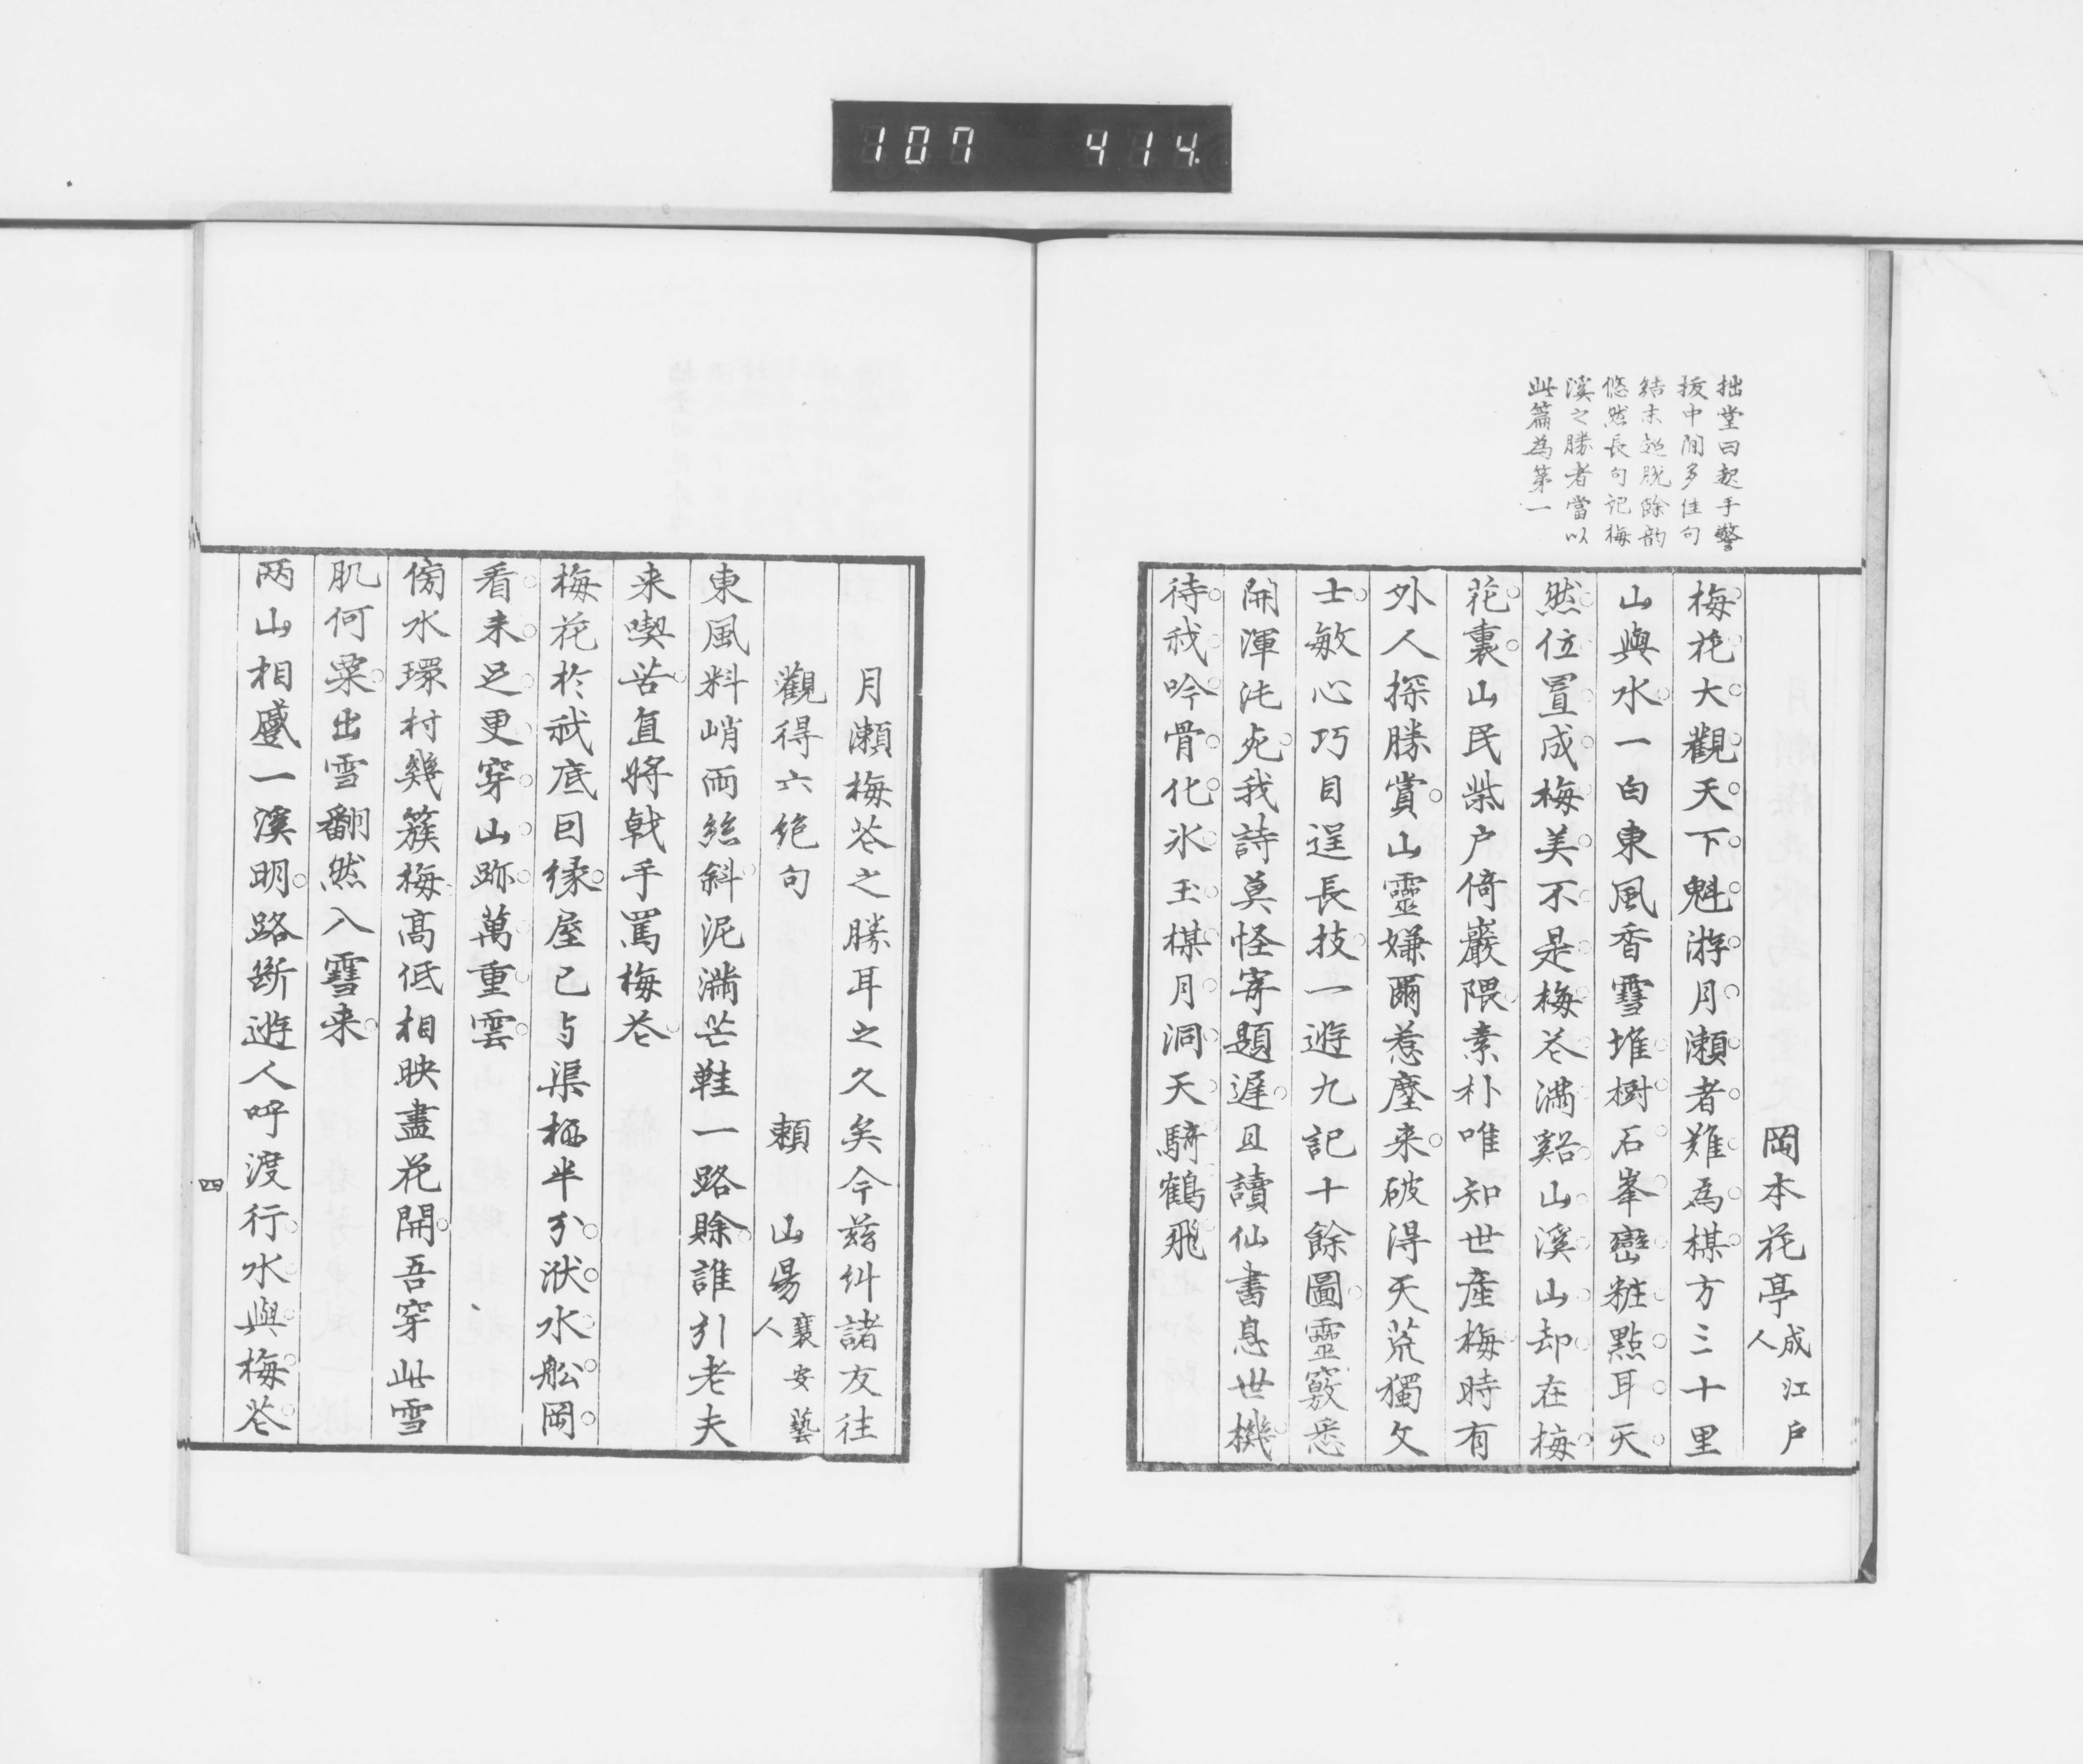 107 414
拙堂曰起手警
拔中間多佳句
結末超脱餘韵
悠然長句記梅
溪之勝者當以
此篇為第一
岡本花亭成江戸人
梅花大觀天下魁游月瀬者難為棋方三十里
山與水一白東風香雪堆樹石峯巒粧點耳天
然位置成梅美不是梅花満谿山溪山却在梅
花裏山民柴戸倚巖隈素朴唯知世産梅時有
外人探勝賞山靈嫌爾惹塵来破得天荒獨文
士敏心巧目逞長技一遊九記十餘圖靈竅悉
開渾沌死我詩莫怪寄題遅且讀仙書息世機
待我吟骨化氷玉棋月洞天騎鶴飛
月瀬梅花之勝耳之久矣今兹糾諸友往
觀得六絶句 頼 山陽襄安藝人
東風料峭雨絲斜泥満芒鞋一路賖誰引老夫
来喫苦直将戟手罵梅花
梅花於我底因縁屋已与渠栖半分洑水舩岡
看未足更穿山跡萬重雲
傍水環村幾簇梅高低相映盡花開吾穿此雪
肌何粟出雪翻然入雪来
兩山相蹙一溪明路断遊人呼渡行水與梅花
四